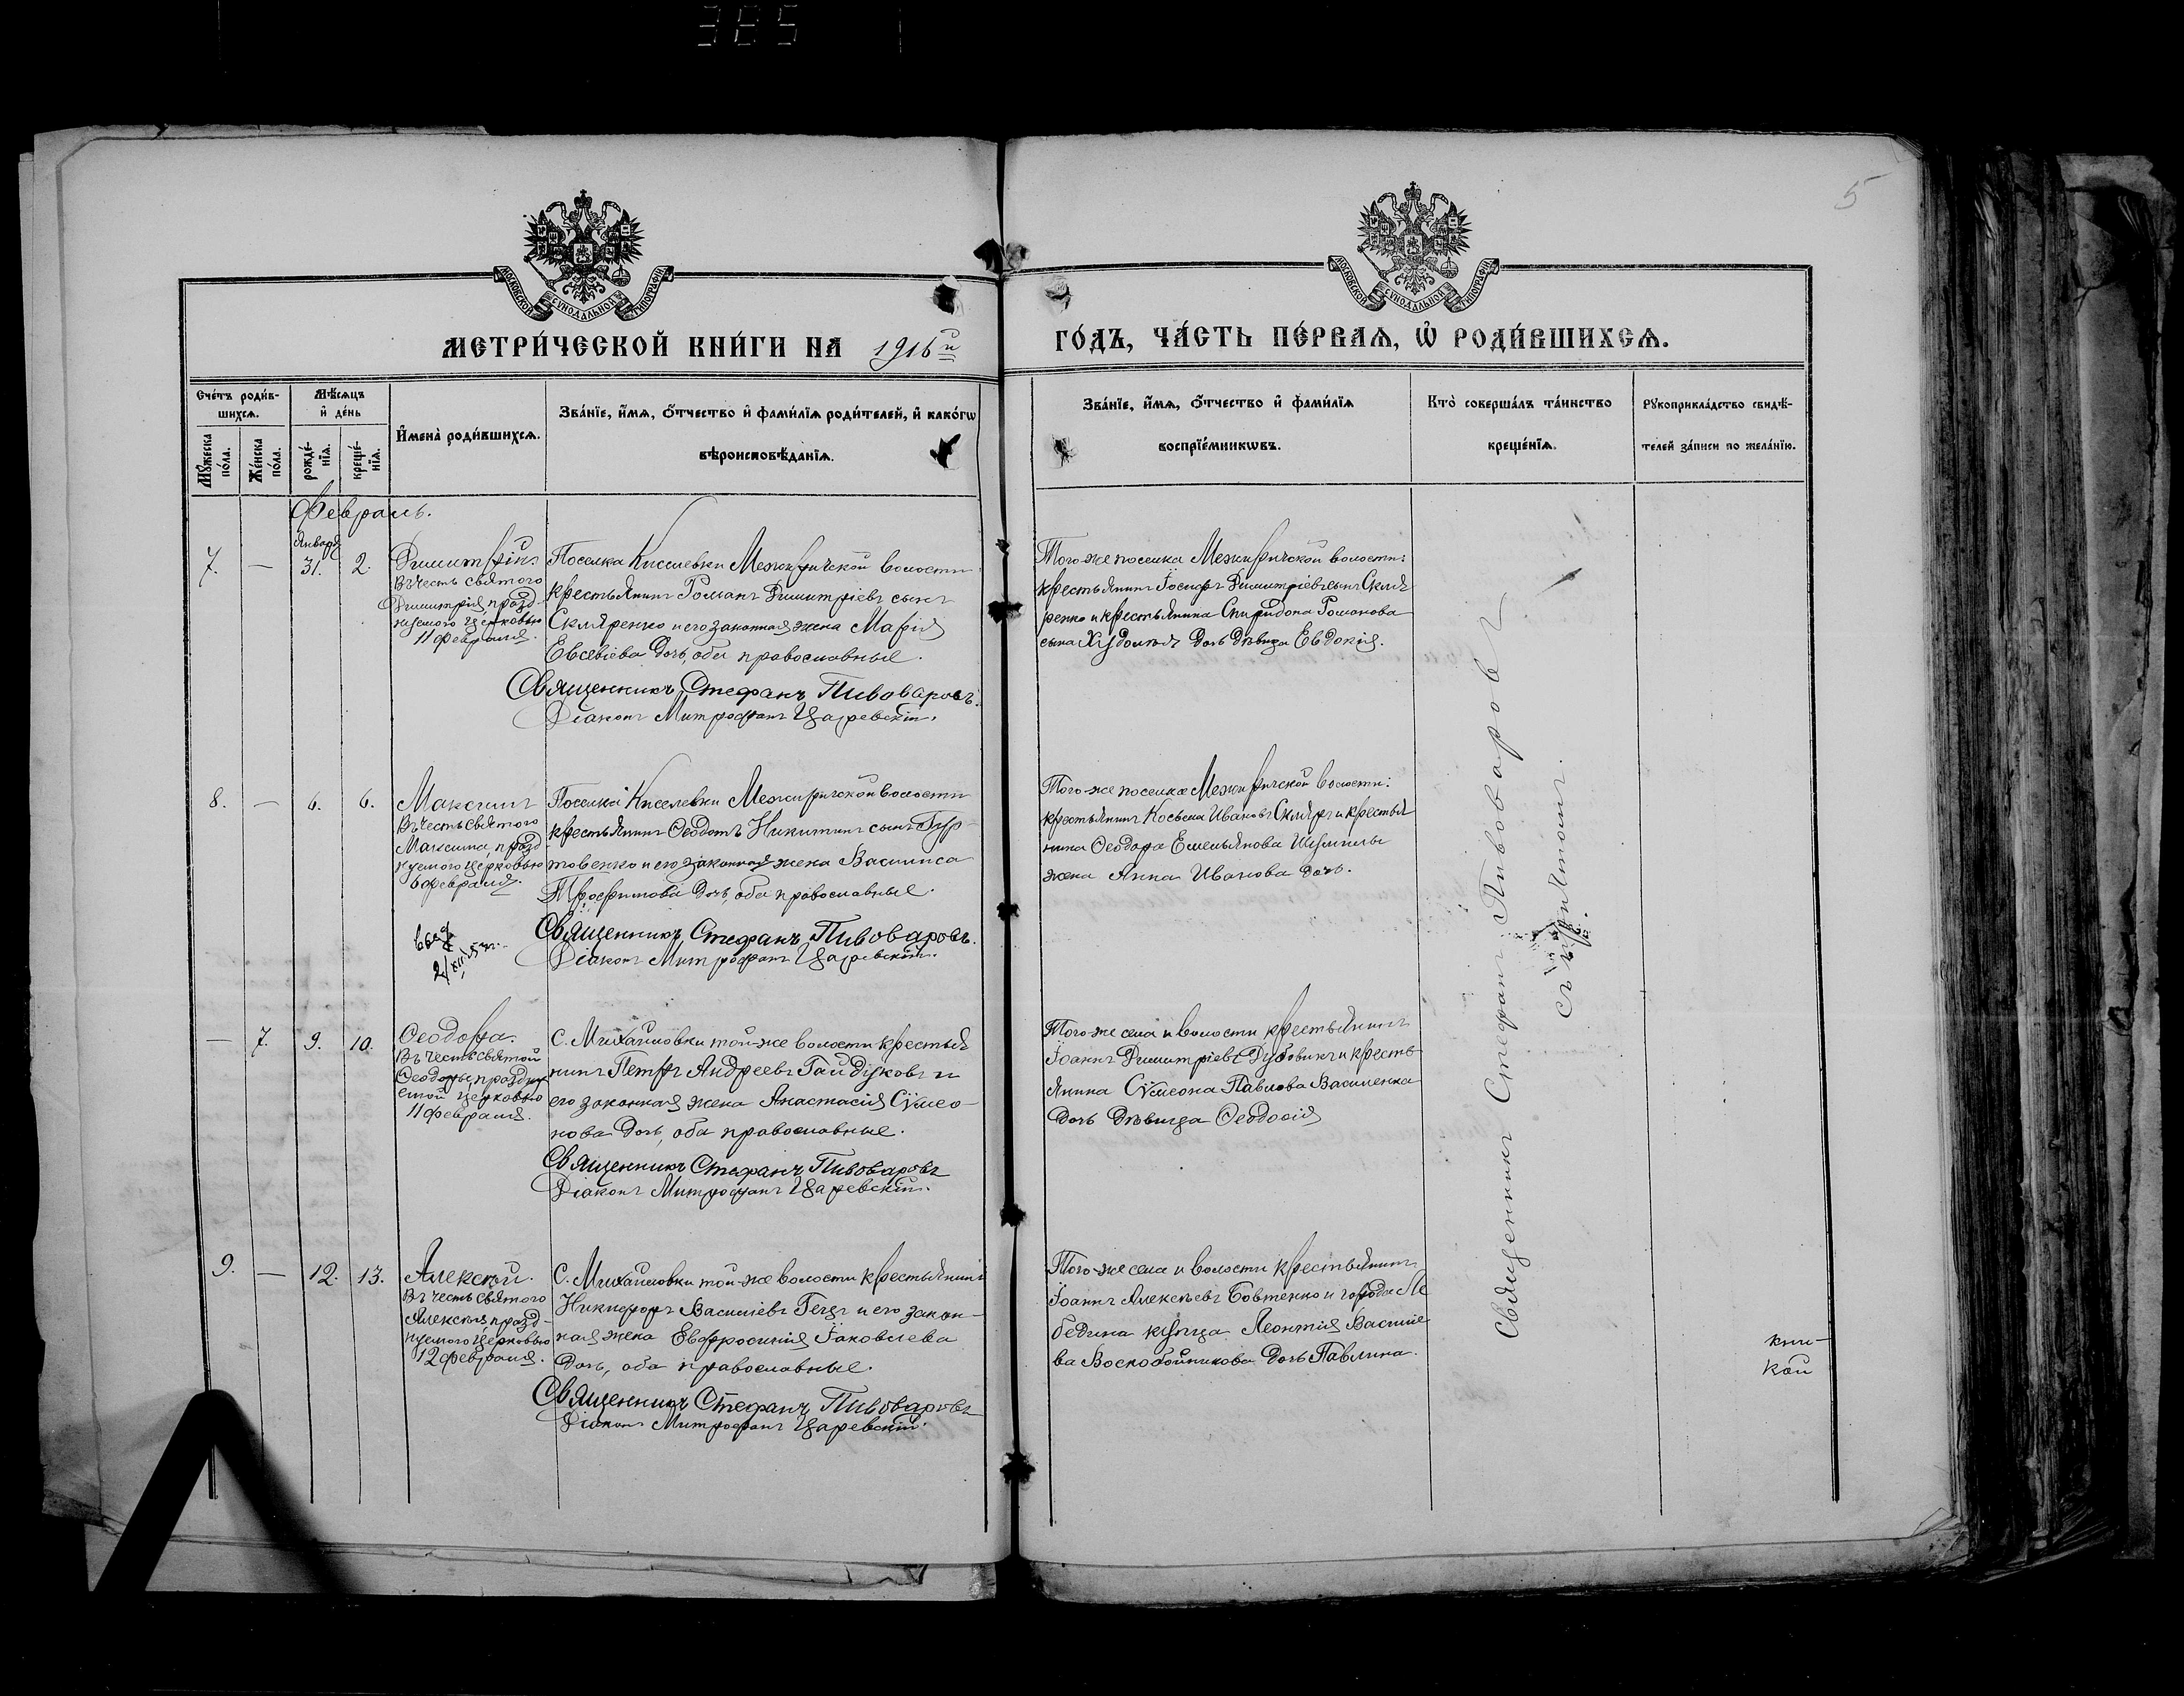 385
5
МОСКОВСКОЙ СУНОДАЛЬНОЙ ТИПОГРАФІИ
МОСКОВСКОЙ СУНОДАЛЬНОЙ ТИПОГРАФІИ
МЕТРИ́ЧЕСКОЙ КНИ́ГИ НА 1916й
ГО́ДЪ, ЧА́СТЬ ПЕ́РВАѦ, Ѡ РОДИ́ВШИХСѦ.
Сче́тъ роди́в-
шихсѧ.
Мѣ́сѧцъ
и҆ де́нь
Мꙋ́жеска
по́ла.
Же́нска
по́ла.
рожде́-
нїѧ.
креще́-
нїѧ.
И҆мена̀ роди́вшихсѧ.
Зва́нїе, и҆́мѧ, ѻ҆́тчество и҆ фами́лїѧ роди́телей, и҆ како́гѡ
вѣроисповѣ́данїѧ.
Зва́нїе, и҆́мѧ, ѻ҆́тчество и҆ фами́лїѧ
воспрїе́мникѡвъ.
Кто̀ соверша́лъ та́инство
креще́нїѧ.
Рꙋкоприкла́дство свидѣ́-
телей за́писи по жела́нїю.
Февраль.
7.
—
Января
31.
2.
Димитрій
Въ честь святого
Димитрія, празд-
нуемого церковью
11 февраля.
Поселка Киселевки Межиричской волости
крестьянинъ Романъ Димитріевъ сынъ
Скляренко и его законная жена Марія
Евсевіева дочь, оба православные.
Священникъ Стефанъ Пивоваровъ.
Діаконъ Митрофанъ Царевскій.
Того-же поселка Межиричской волости:
крестьянинъ Іосифъ Димитріевъ сынъ Скля
ренко и крестьянина Спиридона Романова
сына Худолѣя дочь дѣвица Евдокія.
8.
—
6.
6.
Максимъ
Въ честь святого
Максима, празд
нуемого церковью
6 февраля.
Поселка Киселевки Межиричской волости
крестьянинъ Ѳеодотъ Никитинъ сынъ Гур-
товенко и его законная жена Василиса
Трофимова дочь, оба православные.
Священникъ Стефанъ Пивоваровъ.
Діаконъ Митрофанъ Царевскій.
Того-же поселка Межиричской волости:
крестьянинъ Косьма Ивановъ Скляръ и крестья
нина Ѳеодора Емельянова Шумилы
жена Анна Иванова дочь.
—
7.
9.
10.
Ѳеодора.
Въ честь святой
Ѳеодоры, празднуе
емой церковью
11 февраля.
С. Михайловки той-же волости крестья
нинъ Петръ Андреевъ Гайдуковъ и
его законная жена Анастасія Сѵмео-
нова дочь, оба православные.
Священникъ Стефанъ Пивоваровъ
Діаконъ Митрофанъ Царевскій.
Того-же села и волости крестьянинъ
Іоаннъ Димитріевъ Дубовикъ и кресть-
янина Сѵмеона Павлова Василенка
дочь дѣвица Ѳеодосія
9.
—
12.
13.
Алексѣй.
Въ честь святого
Алексѣя, празд-
нуемого церковью
12 февраля.
С. Михайловки той-же волости крестьянинъ
Никифоръ Василіевъ Гецъ и его закон-
ная жена Евфросинія Іаковлева
дочь, оба православные.
Священникъ Стефанъ Пивоваровъ
Діаконъ Митрофанъ Царевскій.
Того-же села и волости крестьянинъ
Іоаннъ Алексѣевъ Бовтенко и города Ле
бедина купца Леонтія Василіе
ва Воскобойникова дочь Павлина.
Священникъ Стефанъ Пивоваровъ
съ причтомъ.
кни-
кой